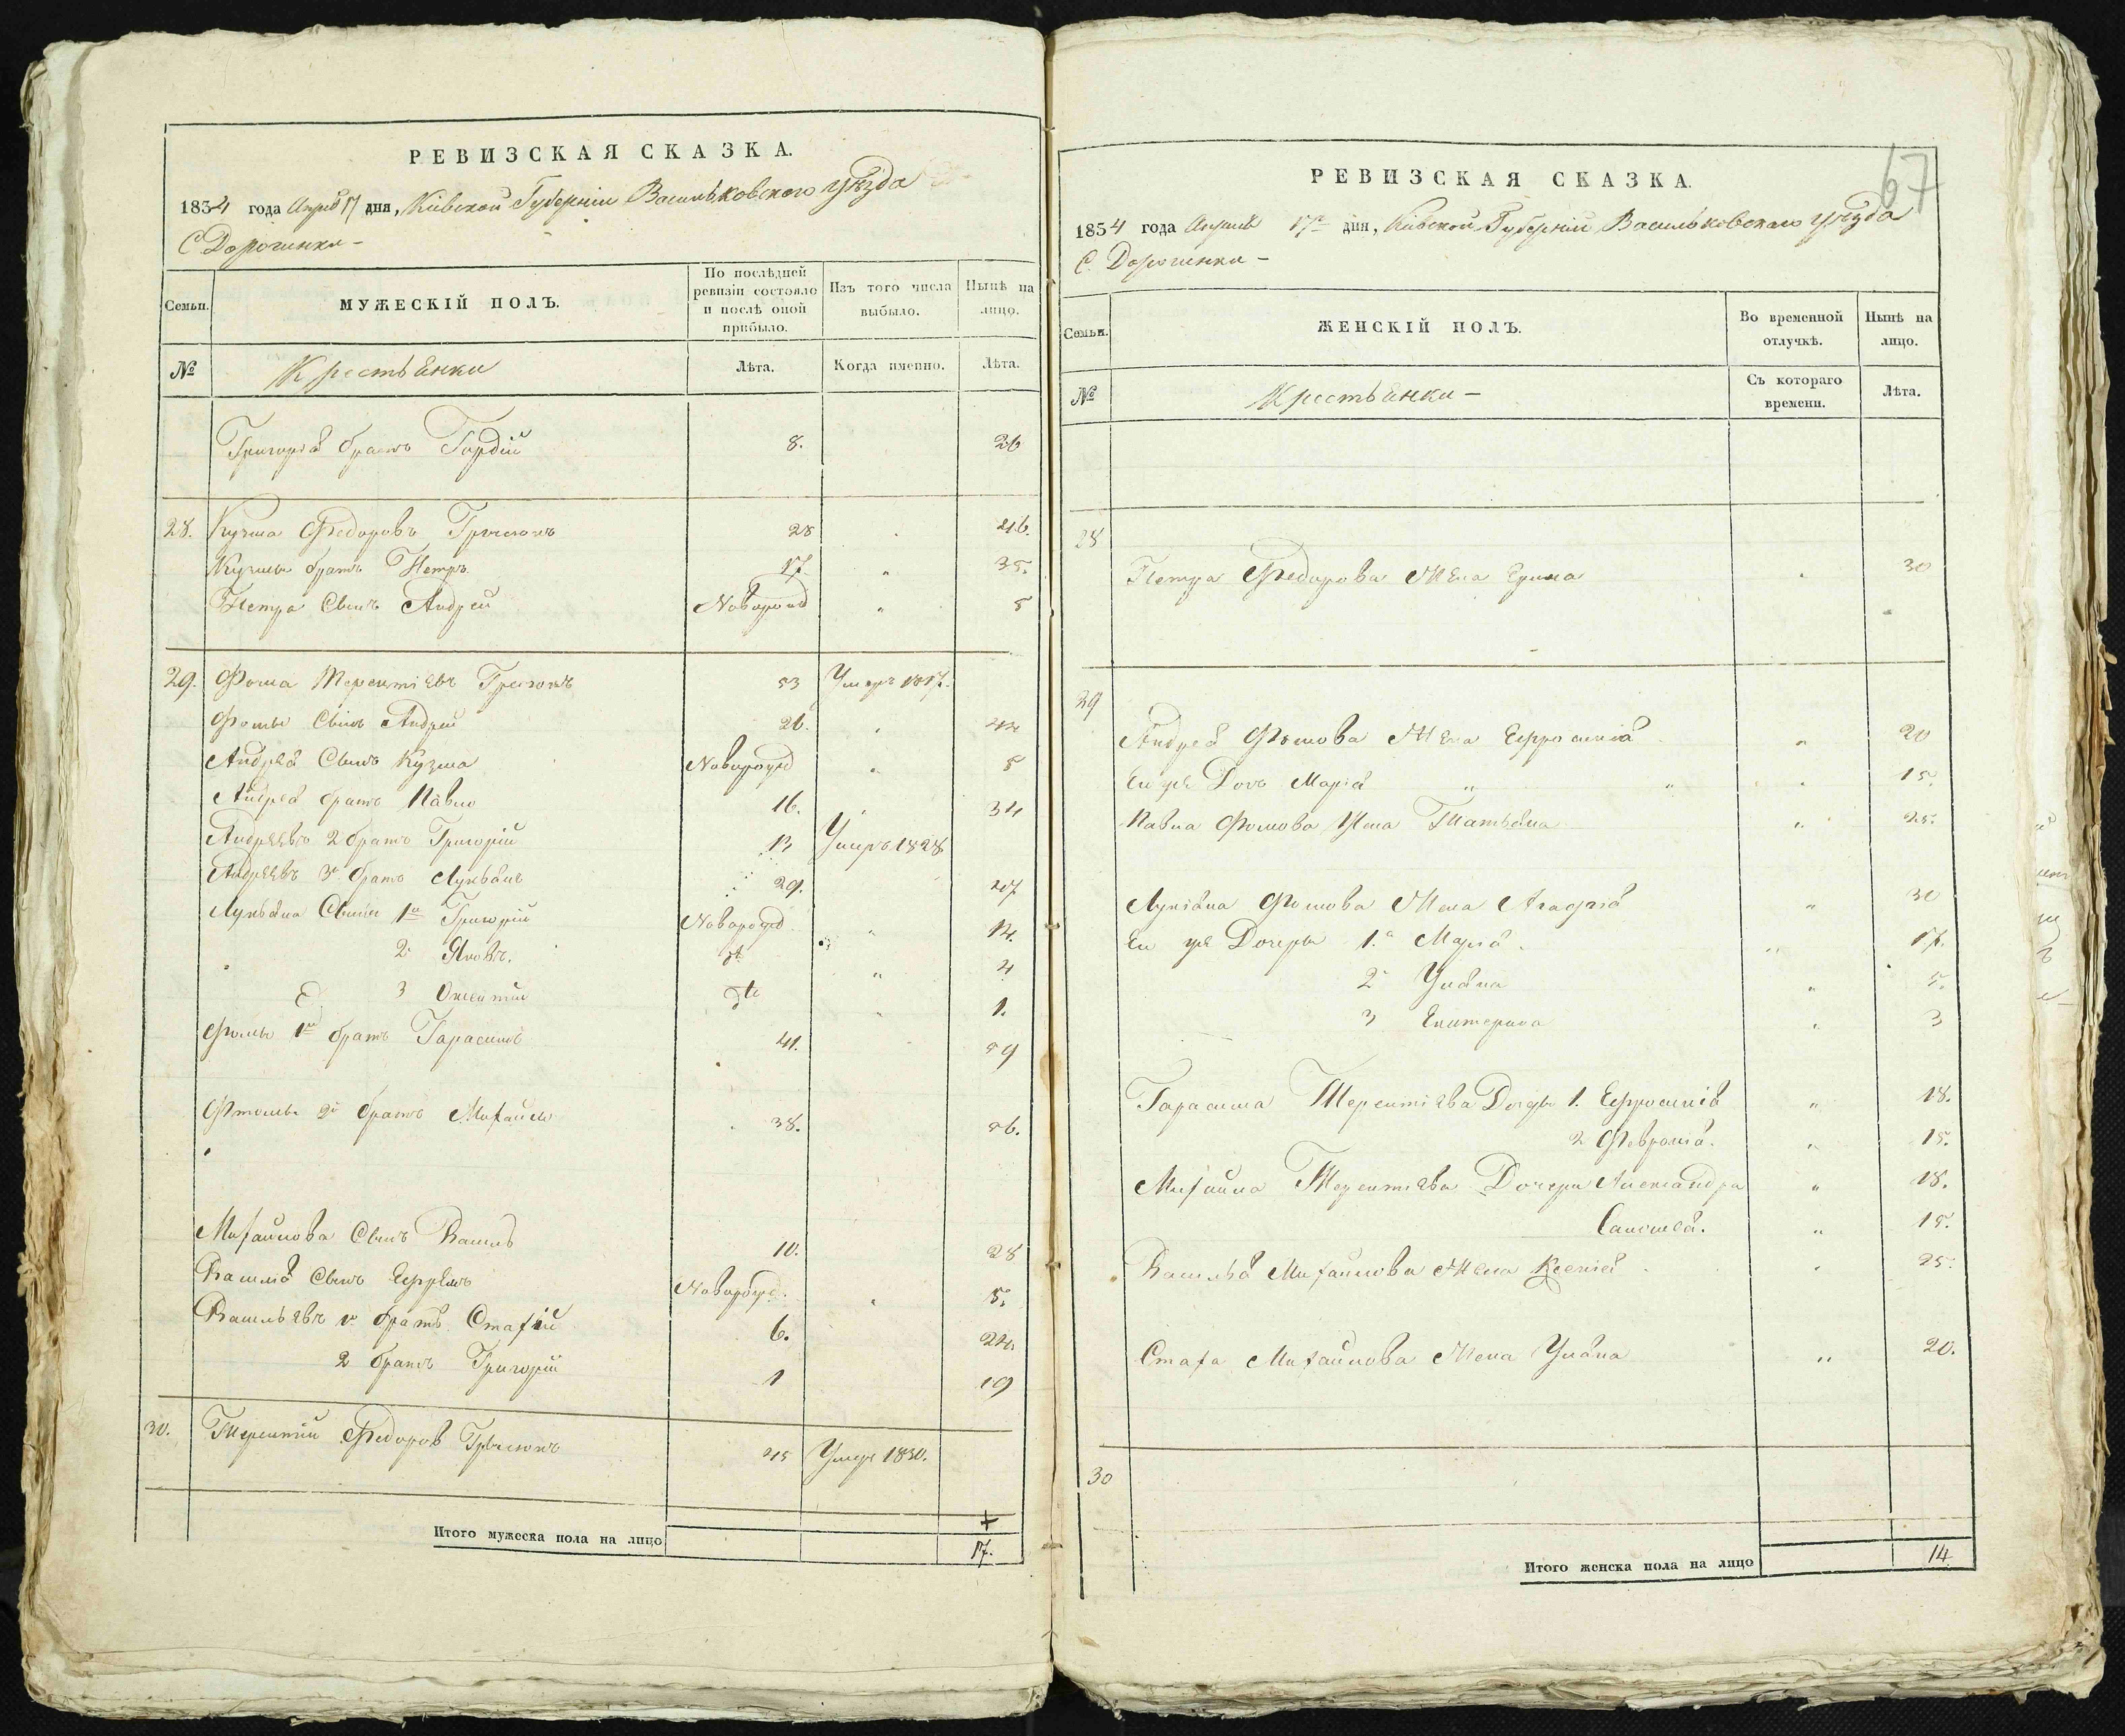 РЕВИЗСКАЯ СКАЗКА.
1834 года Апреля 17 дня, Кіевской Губерніи Васильковского уѣзда
С. Дорогинки -
Семьи.
МУЖЕСКІЙ ПОЛЪ.
По послѣдней ревизіи состояло и послѣ оной прибыло.
Изъ того числа выбыло.
Нынѣ на лицо.
№
Лѣта.
Когда именно.
Лѣта.
Григорія братъ Гордій 8. 26
28. Кузма Федоровъ 28 46.
Кузмы братъ Петръ 17. 35.
Петра Сынъ Андрей Новорожд " 5
29. Фома Терентіевъ 53
Фомы Сынъ Андрей 26. 44
Андрея Сынъ Кузма Новорожд 5
Андрея братъ Павло 16. 34
Андреевъ 2 братъ Григорій 13 Умеръ 1828
Андреевъ 3й братъ Лукьянъ 29. 47
Лукьяна Сыны 1й Григорій Новорожд. 14.
2й Яковъ. " 4
3 1.
Фомы 1й братъ Гарасимъ 41. 59
Фомы 2й братъ Михайло 38. 56.
Михайлова Сынъ Василь 10. 28
Василія Сынъ Ефремъ Новорожд. 5.
Васильевъ 1й братъ Стахій 6. 24.
2 братъ Григорій 1 19
30. Терентій Федоров 45 Умеръ 1830.
Итого мужеска пола на лицо 17.
67
РЕВИЗСКАЯ СКАЗКА.
1854 года Апреля 17го дня, Кіевской Губерніи Васильковскаго уѣзда
С. Дорогинки -
Семьи.
ЖЕНСКІЙ ПОЛЪ.
Во временной отлучкѣ.
Нынѣ на лицо.
№
Крестьянки -
Съ котораго времени.
Лѣта.
28
Петра Федорова Жена 30
29
Андрея Фомова Жена Ефросинія " 20
Ея же Дочь Марія " " 15.
Павла Фомова Жена Татьяна " 25.
Лукіана Фомова Жена Агафія " 30
Ея же Дочеры 1.я Марія. " 17.
2я Уліяна " 5.
3 Екатерина 3
Гарасима Терентіева Дочеры 1. Ефросинія " 18.
2 Февронія. " 15.
Михайла Терентіева Дочери Александра " 18.
" 15.
Василья Михайлова Жена Ксенія 25.
Стаха Михайлова Жена Уліяна " 20.
30
Итого женска пола на лицо 14